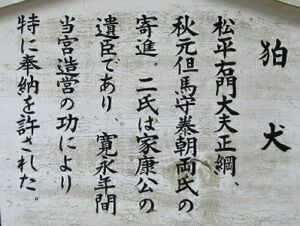 狛犬
松平右門大夫正綱、
秋元但馬守泰朝両氏の
寄進。二氏は家康公の
遺臣であり 寛永年間
当宮造営の功により
特に奉納を許された。